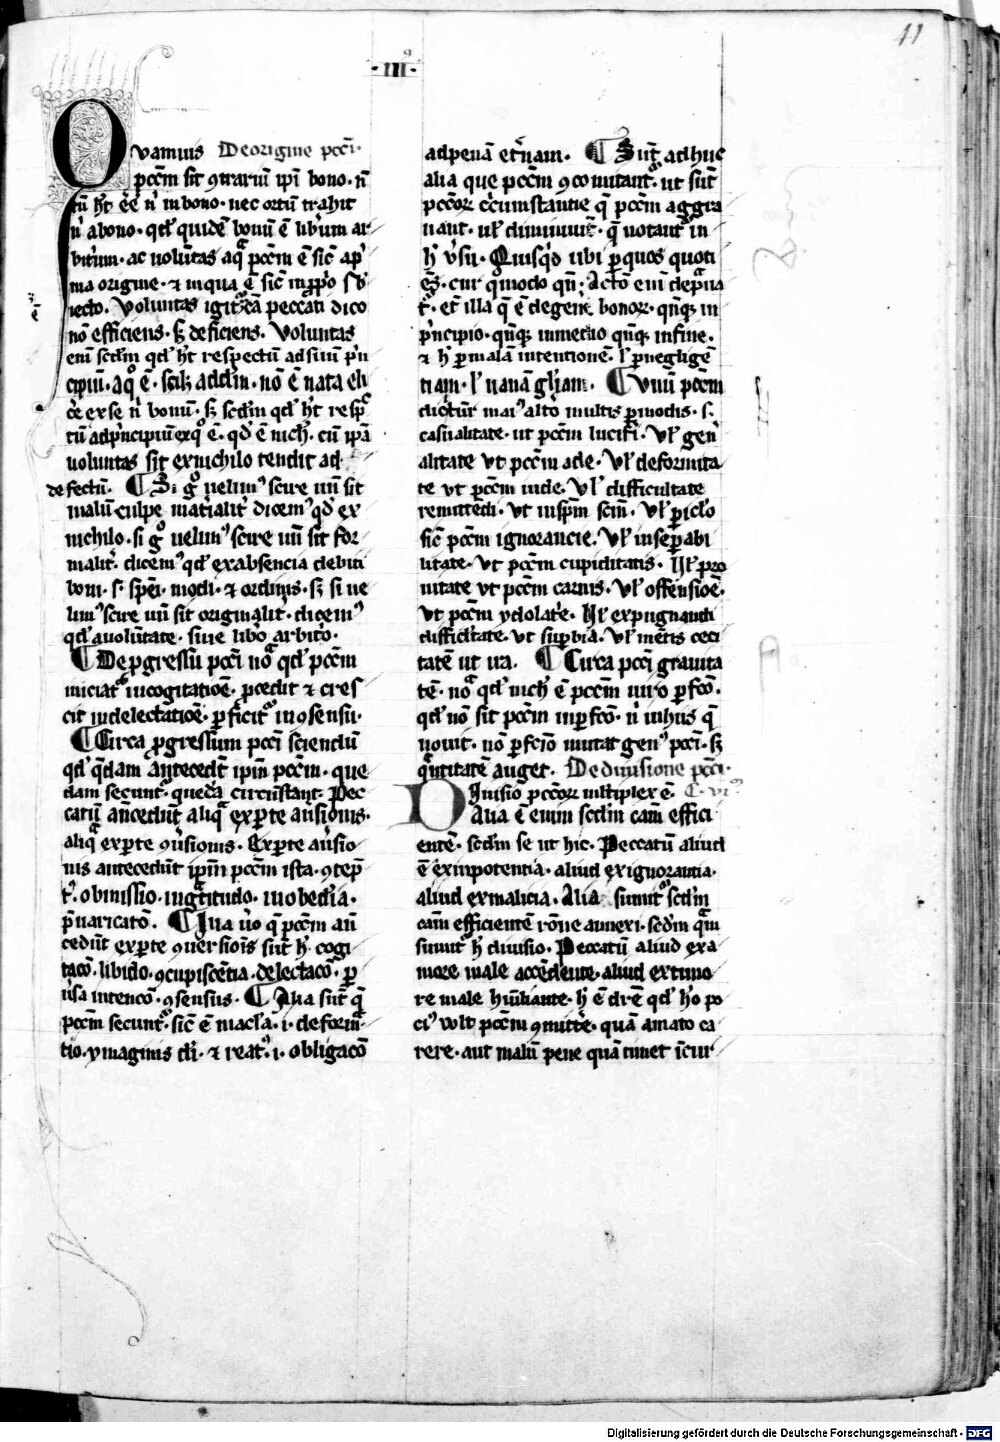 11
·III·
Quamuis De origine pccī·
pccm̄ sit ꝯtrariū ip̄i bono· n̄
tū hꝫ eē n̄ in bono· nec ortū trahit
n̄ a bono· qd' quidē bonū ē lib'um ar
bit'um· ac volūtas a q̄ pccm̄ ē sic̄ a p'
ma origine· ⁊ in qua ē sic̄ in p̄p'o sb'
iecto· Voluntas igit̄ cā peccati dico
nō efficiens· sꝫ deficiens· Voluntas
enī scdm̄ qd' hꝫ respectū ad suū p'n
cipiū· a q° ē· scilꝫ ad dm̄· nō ē nata eli
c̄e ex se n̄ bonū· sꝫ scdm̄ qd' hꝫ resp̄c
tū ad p'ncipiū ex q° ē· qd' ē nich'· cū ip̄a
voluntas sit ex nichilo tendit ad
defectū· ¶ Si g° velim' scire vn̄ sit
malū culpe mat'ialit' dicem' qd' ex
nichilo· si g° velim' scire vn̄ sit for
malit'· dicem' qd' ex absencia debiti
boni· s· sp̄ei· modi· ⁊ ordinis· sꝫ si ve
lim' scire vn̄ sit originalit'· dicem'
qd' a volūtate· siue lib'o arbit'o·
¶ De ꝓgressu pccī no° qd' pccm̄
iniciat̄ in cogitatiōe· ꝓcedit ⁊ cres
cit in delectatiōe· ꝑficit̄ in ꝯsensu·
¶ Circa ꝓgressum pccī sciendū
qd' q̄dam antecedūt ip̄m pccm̄· que
dam secunt̄· quedā circūstant· Pec
catū an̄cedūt aliq̄ ex ꝑte au'sionis·
aliq̄ ex ꝑte ꝯu'sionis· Ex ꝑte au'sio
nis antecedūt ip̄m pccm̄ ista· ꝯtēp
t'· obmissio· ingᵃtitudo· inobedīa·
p̄uaricatō· ¶ Illa ūo q̄ pccm̄ an̄
cedūt ex ꝑte ꝯuersiōis sūt h'· cogi
tacō· libido· ꝯcupiscētia· delectacō· ꝑ
u'sa intencō· ꝯsensus· ¶ Alia sūt q̄
pccm̄ secunt̄· sic̄ ē macl'a· i· deform̄
tio· ymaginis di'· ⁊ reat'· i· obligacō
ad penā et'nam· ¶ Sūt adhuc
alia que pccm̄ ꝯcomitant̄· ut sūt
pccōꝝ c'cumstantie q̄ pccm̄ aggra
uant· ul' diminuūt· q̄ notant̄ in
h' v'su· Quis q'd vbi ꝑ quos quoti
ēs· cur q°modo qn̄· Actō enī depᵃua
t'· et illa q̄ ē de gen'e bonoꝝ· qn̄qꝫ in
p'ncipio· qn̄qꝫ in medio qn̄qꝫ in fine·
⁊ h' ꝑ malā intentionē· l' ꝑ negligē
tiam· l' uanā gl'iam· ¶ Vnū pccm̄
dicitur mai' alt'o multis ꝑ modis· s·
casualitate· ut pccm̄ lucif'i· Vl' gen'
alitate vt pccm̄ ade· Vl' deformita
te vt pccm̄ iude· Vl' difficultate
remittēdi· vt in sp̄m scm̄· Vl' ꝑic'lo
sic̄ pccm̄ ignorancie· Vl' insep̄abi
litate· vt pccm̄ cupiditatis· Vl' pro
nitate vt pccm̄ carnis· Vl' offensiōe·
vt pccm̄ ydolat'e· Vl' expugnandi
difficl'tate· vt sup̄bia· Vl' mētis ceci
tatē ut ira· ¶ Circa pccī grauita
tē· no° qd' nich' ē pccm̄ in v'o ꝑfcō·
qd' nō sit pccm̄ in ꝑfcō· n' in hiis q̄
nouit· nō ꝑfcīo mutat gen' pccī· sꝫ
q̄ntitatē auget· De diuisione pccī·
Diuisio pccōꝝ mltiplex ē· C· vi
Alia ē enim scdm̄ cām effici
entē· scdm̄ se ut hic· Peccatū aliud
ē ex inpotentia· aliud ex ignorantia·
aliud ex malicia· Alia sumit̄ scdm̄
cām efficientē rōne annexi· scdm̄ qᵃm
sumit̄ h' diuisio· Peccatū aliud ex a
more male accēdente· aliud ex timo
re male hūiliante· h' ē dr̄e qd' h'o po
ci' vult pccm̄ ꝯmitt'e· quā amato ca
rere· aut malū pene quā timet īcur
Digitalisierung gefördert durch die Deutsche Forschungsgemeinschaft - DFG